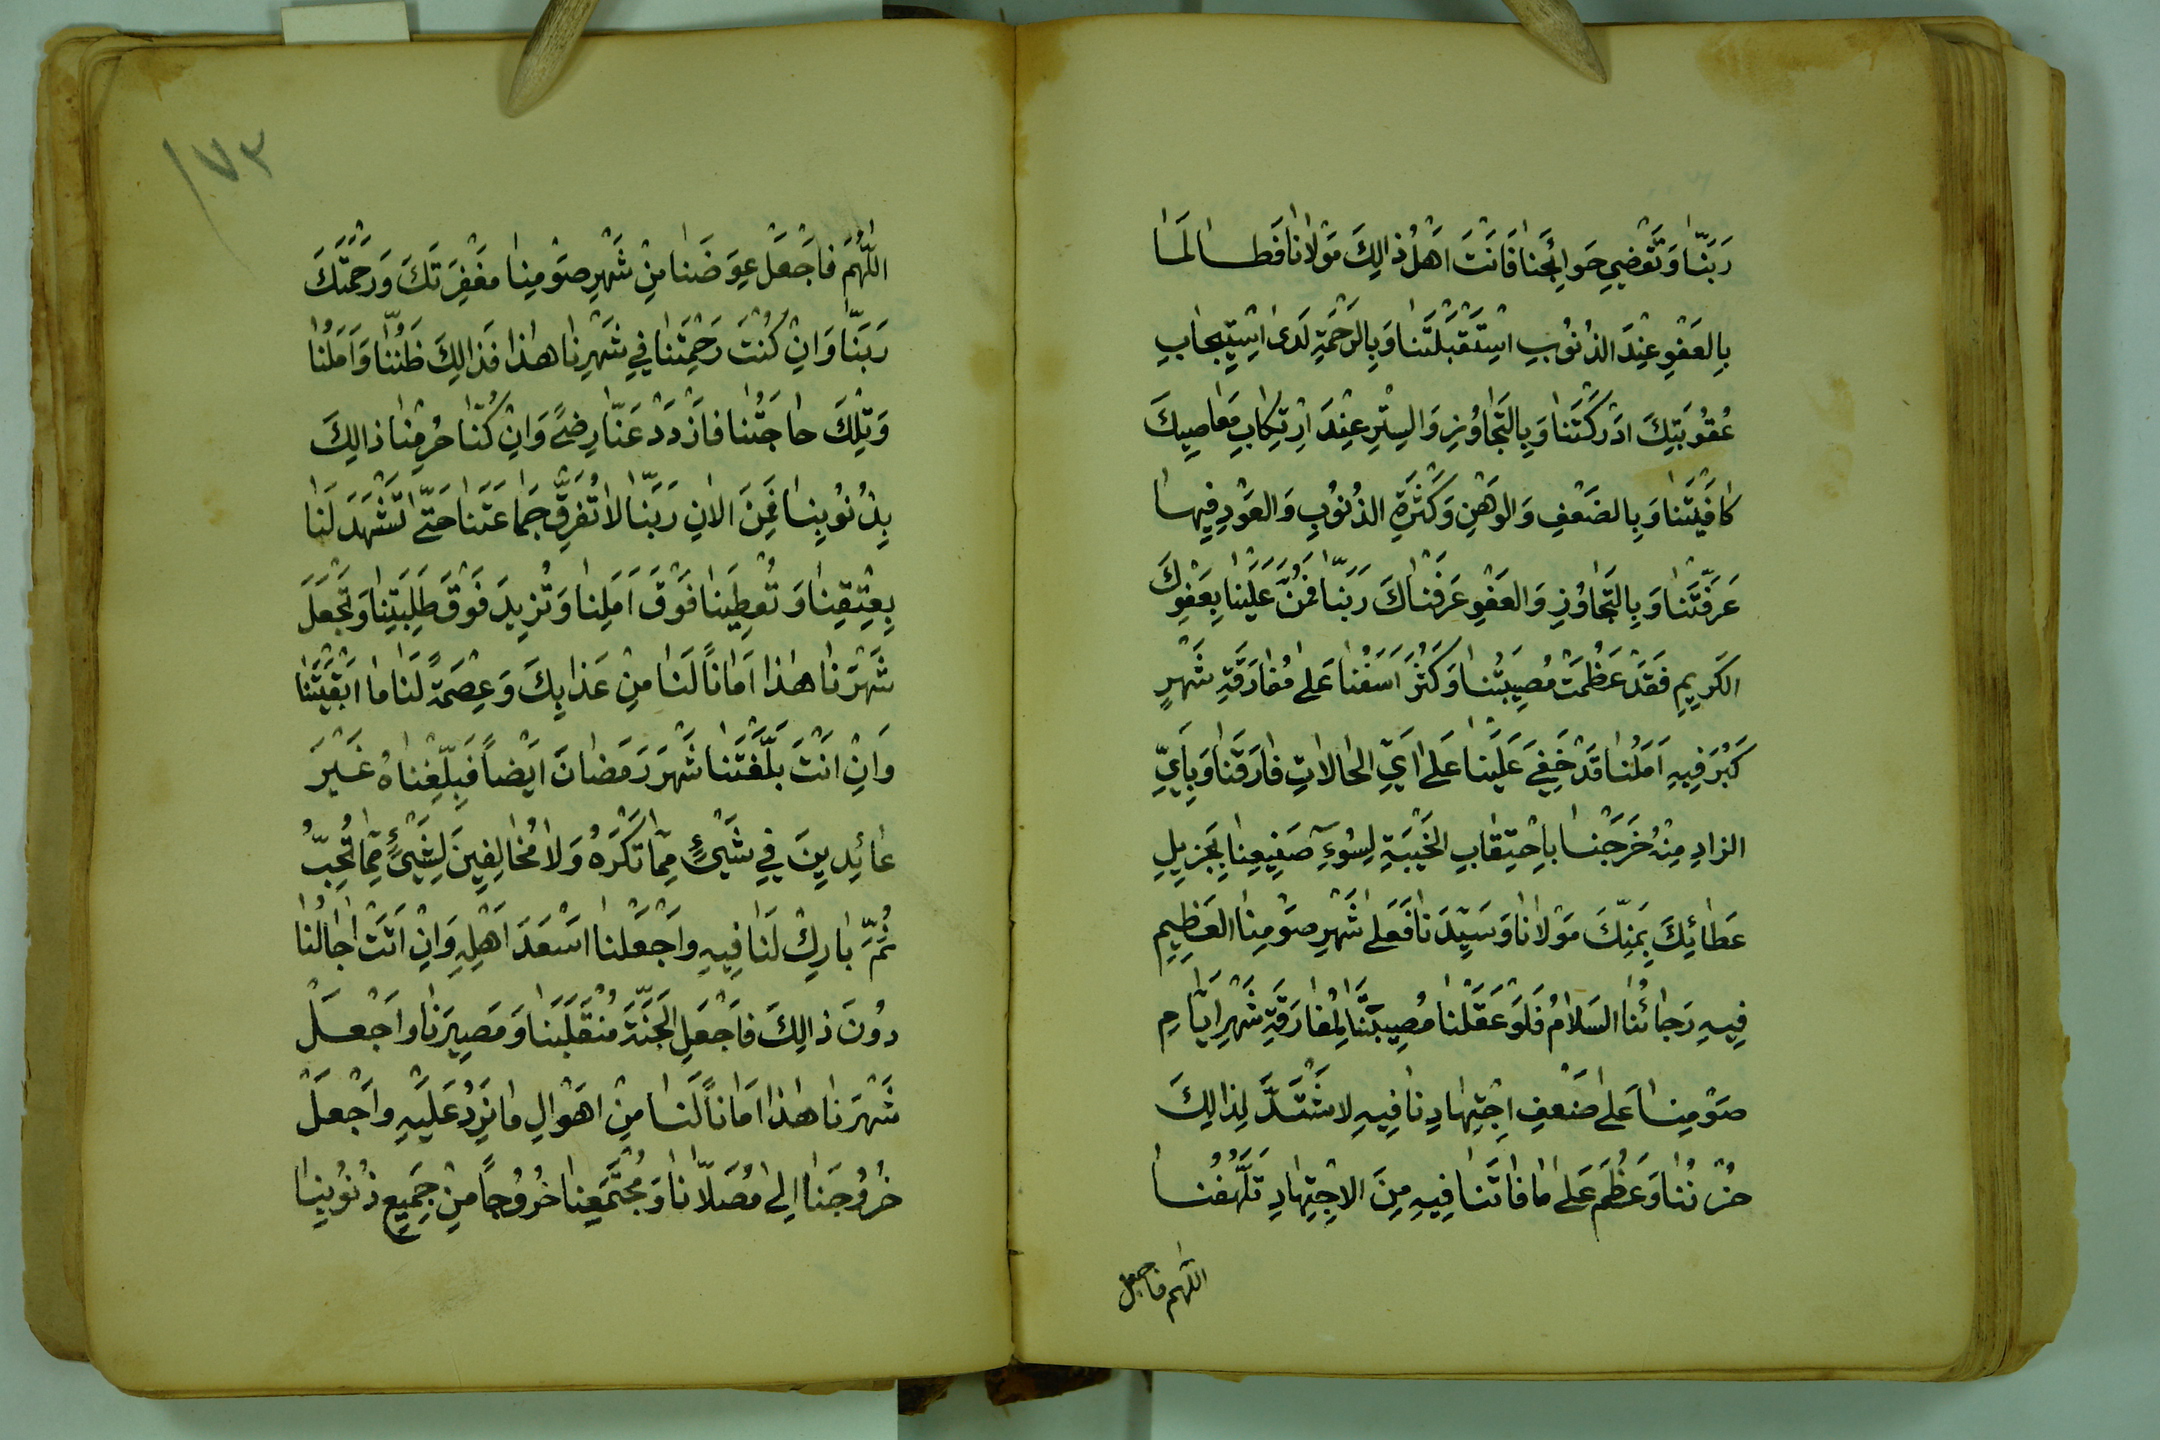 رَبَّنَا وَتَقْضِيَ حَوَائِجَنَا فَاَنْتَ اَهْلُ ذَالِكَ مَوْلَانَا فَطَالَمَا
بِالعَفْوِ عِنْدَ الذُنُوْبِ اسْتَقْبَلْتَنَا وَبِالرَحْمَةِ لَدَى اسْتِيْجَابِ
عُقُوْبَتِكَ اَدْرَكْتَنَا وَبِالتَجَاوُزِ وَالسِتْرِ عِنْدَ ارْتِكَابِ مَعَاصِيكَ
كَافَيْتَنَا وَبِالضَعْفِ وَالوَهْنِ وَكَثْرَةِ الذُنُوْبِ وَالعَوْدِ فِيهَا
عَرَفْتَنَا وَبِالتَجَاوُزِ وَالعَفْوِ عَرَفْنَاكَ رَبَّنَا فَمُنَّ عَلَيْنَا بِعَفْوِكَ
الكَرِيمِ فَقَدْ عَظُمَتْ مُصِيبَتُنَا وَكَثُرَ اَسَفُنَا عَلٰى مُفَارَقَةِ شَهْرٍ
كَبُرَ فِيهِ اَمَلُنَا قَدْ خَفِيَ عَلَيْنَا عَلٰى اَيِّ الحَالَاتِ فَارَقَنَا وَبِاَيِّ
الزَادِ مِنْهُ خَرَجْنَا بِاحْتِقَابِ الخَيْبَةِ لِسُوْءِ صَنِيعِنَا بِجَزِيلِ
عَطَائِكَ بِمَنِّكَ مَوْلَانَا وَسَيِّدَنَا فَعَلٰى شَهْرِ صَوْمِنَا العَظِيمِ
فِيهِ رَجَائُنَا السَلَامُ فَلَوْ عَقَلْنَا مُصِيبَتَنَا لِمُفَارَقَةِ شَهْرِ اَيَّامِ
صَوْمِنَا عَلٰى ضَعْفِ اجْتِهَادِنَا فِيهِ لاشْتَدَّ لِذَالِكَ
حُزْنُنَا وَعَظُمَ عَلٰى مَا فَاتَنَا فِيهِ مِنَ الاجْتِهَادِ تَلَهُّفُنَا
اللّٰهم فاجعل
١٧٣
اللّٰهُمَّ فَاجْعَلْ عِوَضَنَا مِنْ شَهْرِ صَوْمِنَا مَغْفِرَتَكَ وَرَحْمَتَكَ
رَبَّنَا وَانْ كُنْتَ رَحِمْتَنَا فِي شَهْرِنَا هٰذَا فَذَالِكَ ظَنُّنَا وَاَمَلُنَا
وَتِلْكَ حَاجَتُنَا فَازْدَدْ عَنَّا رِضًى وَانْ كُنَّا حُرِمْنَا ذَالِكَ
بِذُنُوْبِنَا فَمِنَ الانِ رَبَّنَا لَا تُفَرِّقْ جَمَاعَتَنَا حَتّٰى تَشْهَدَ لَنَا
بِعِتْقِنَا وَتُعْطِيَنَا فَوْقَ اَمَلِنَا وَتُزِيدَ فَوْقَ طَلِبَتِنَا وَتَجْعَلَ
شَهْرَنَا هٰذَا اَمَانًا لَنَا مِنْ عَذَابِكَ وَعِصْمَةً لَنَا مَا اَبْقَيْتَنَا
وَانْ اَنْتَ بَلَّغْتَنَا شَهْرَ رَمَضَانَ اَيْضًا فَبَلِّغْنَاهُ غَيْرَ
عَائِدِينَ فِي شَيْءٍ مِمَّا تَكْرَهُ وَلَا مُخَالِفِينَ لِشَيْءٍ مِمَّا تُحِبُّ
ثُمَّ بَارِكْ لَنَا فِيهِ وَاجْعَلْنَا اَسْعَدَ اَهْلِهِ وَانْ اَتَتْ اٰجَالُنَا
دُوْنَ ذَالِكَ فَاجْعَلِ الجَنَّةَ مُنْقَلَبَنَا وَمَصِيرَنَا وَاجْعَلْ
شَهْرَنَا هٰذَا اَمَانًا لَنَا مِنْ اَهْوَالِ مَا نَرِدُ عَلَيْهِ وَاجْعَلْ
خُرُوْجَنَا الٰى مُصَلَّانَا وَمُجْتَمَعِنَا خُرُوْجًا مِنْ جَمِيعِ ذُنُوْبِنَا